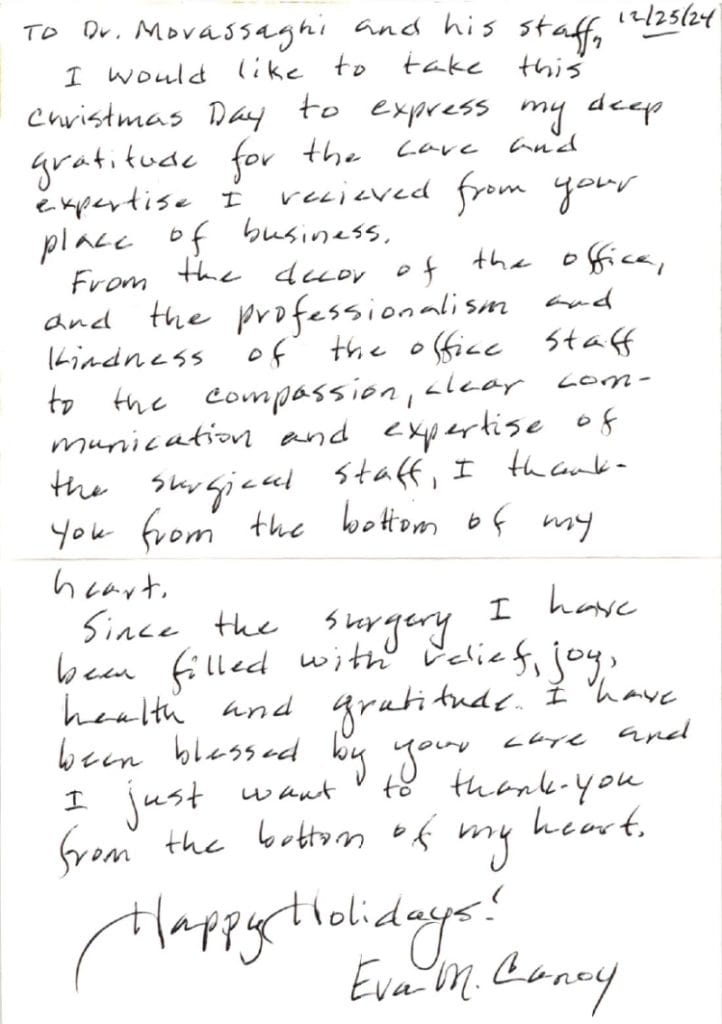 To Dr. Movassaghi and his staff, 12/25/24
I would like to take this
Christmas Day to express my deep
gratitude for the care and
expertise I recieved from your
place of business.
From the decor of the office,
and the professionalism and
kindness of the office staff
to the compassion, clear com-
munication and expertise of
the surgical staff, I thank-
you from the bottom of my
heart.
Since the surgery I have
been filled with relief, joy,
health and gratitude. I have
been blessed by your care and
I just want to thank-you
from the bottom of my heart.
Happy Holidays!
Eva M. Canoy